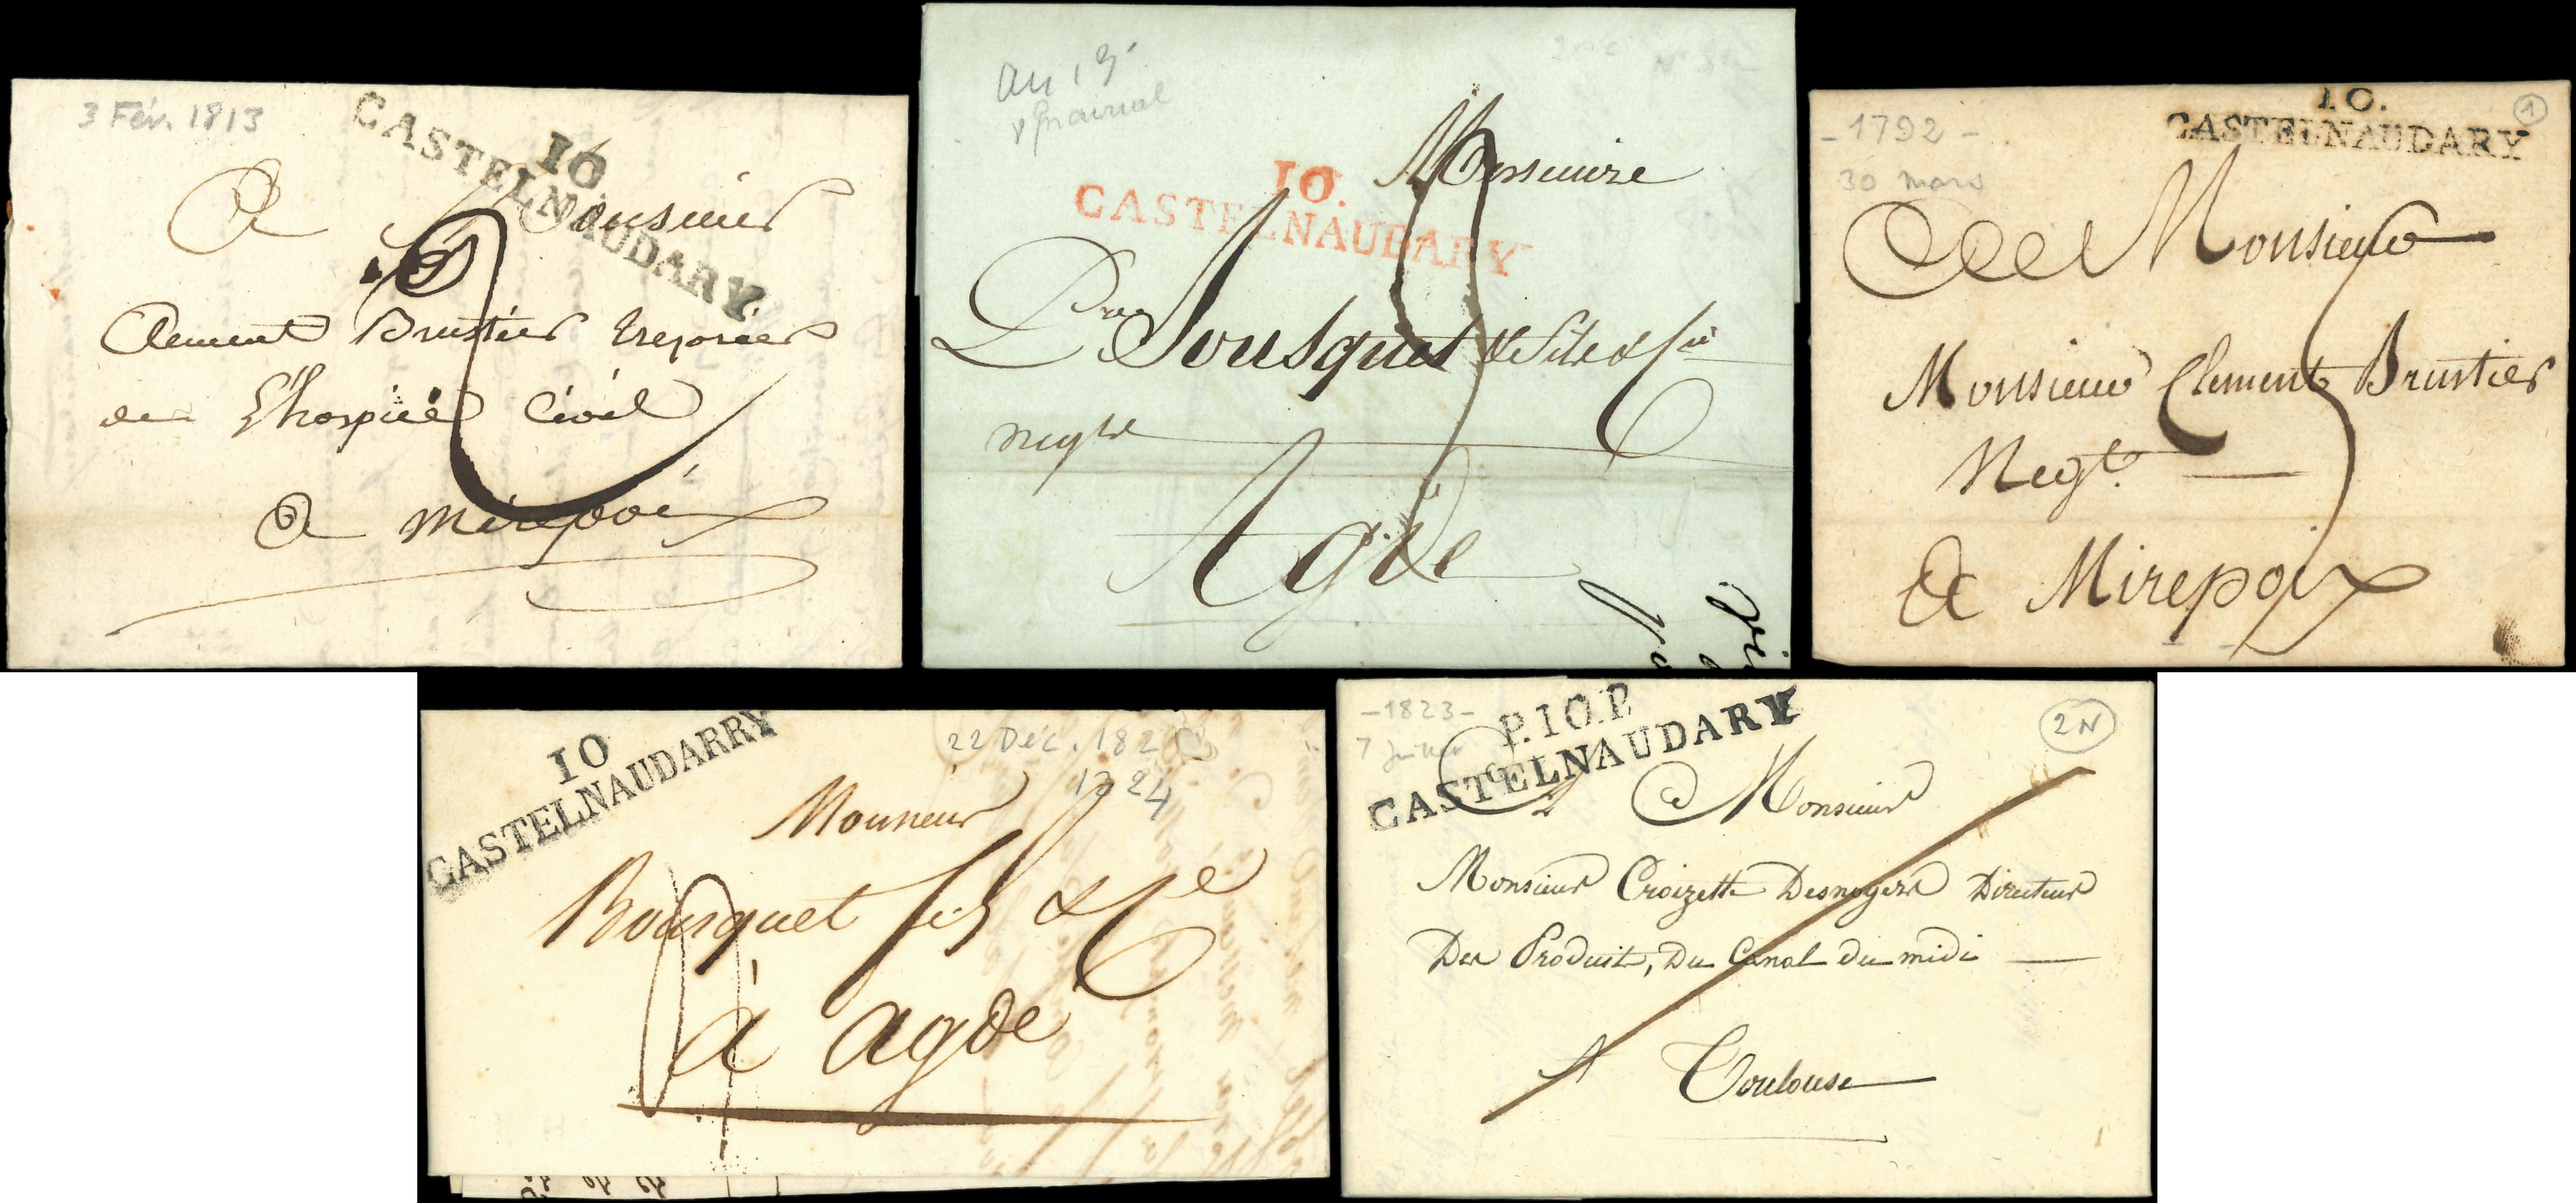 3 Fév. 1813
10.
CASTELNAUDARY
A Monsieur
Clement Brustier trezorier
de L'hospice Civil
A Mirepoi
an 13
10.
CASTELNAUDARY
Messieurs
Bousquet & fils & Cie
negts
Agde
- 1792 -
30 mars
1
10.
CASTELNAUDARY
A Monsieur
Monsieur Clement Brustier
Negt.
A Mirepoix
22 Dec. 182
1824
10
CASTELNAUDARRY
Monsieur
Bousquet fils & Cie
à agde
- 1823 -
7 Juillet
2N
P.10.P.
CASTELNAUDARY
A Monsieur
Monsieur Croizette Desnoyers Directeur
Des Produits, Du Canal du midi
A Toulouse